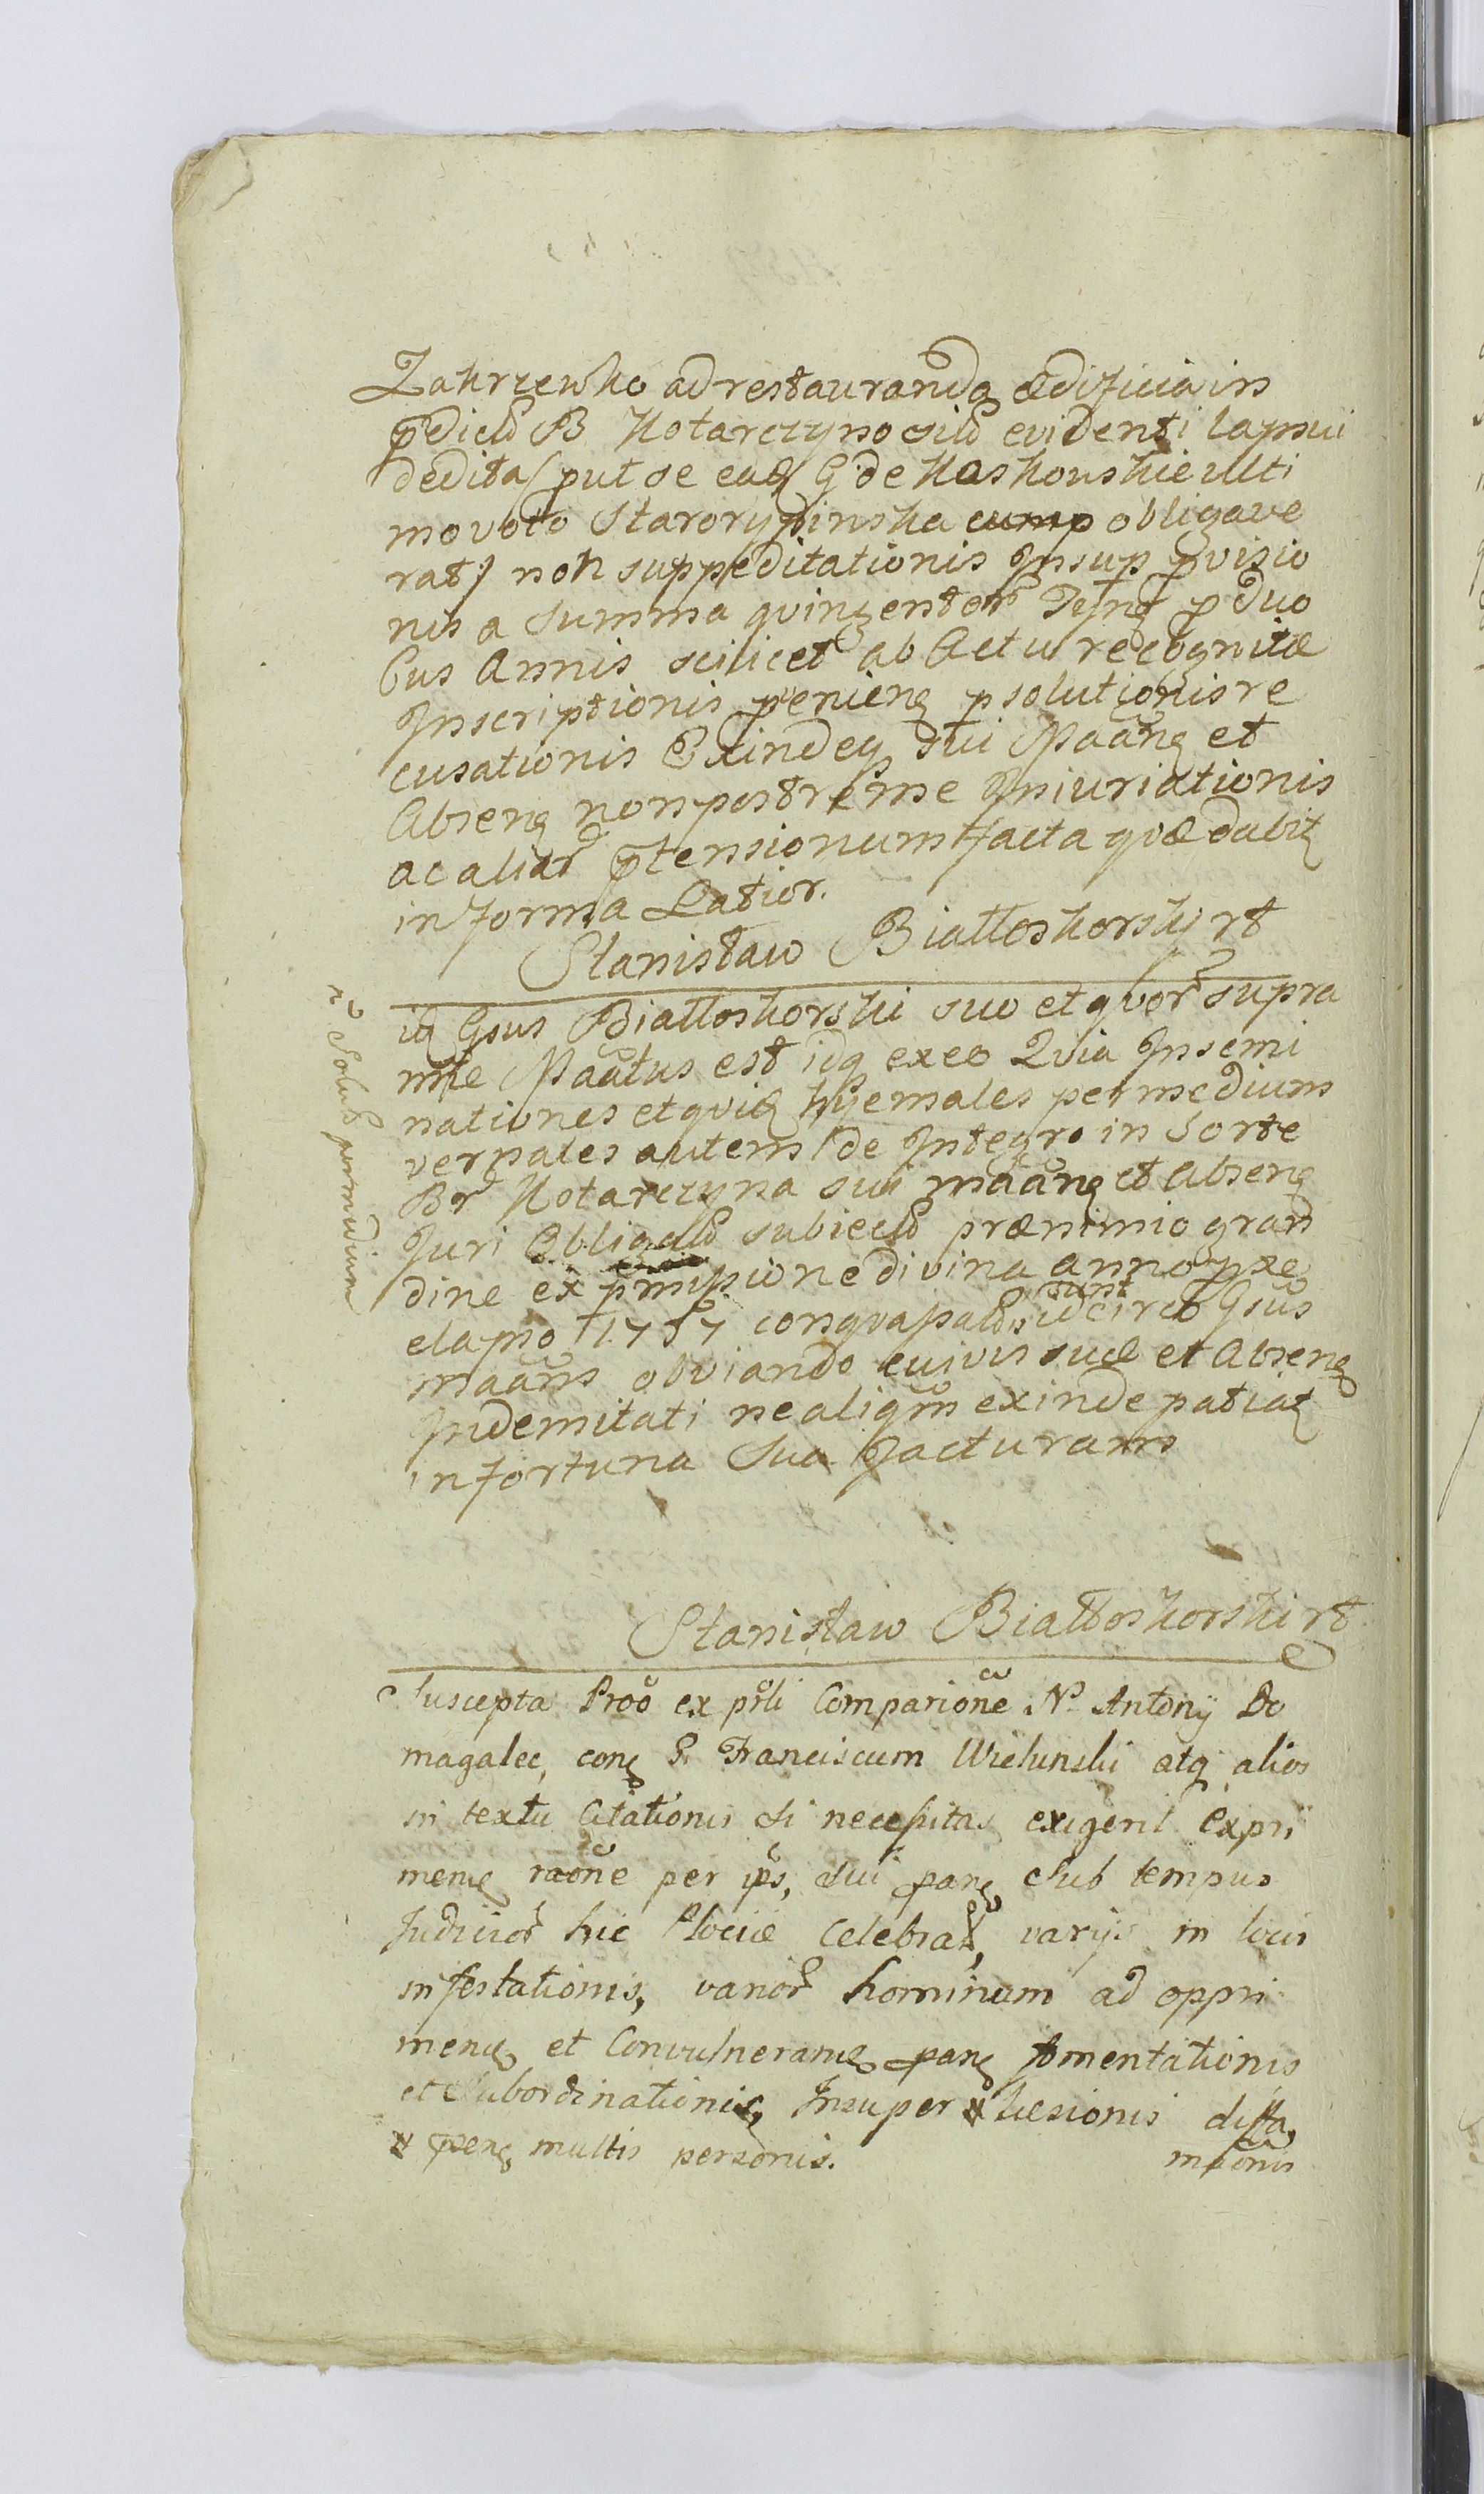 Zakrzewko ad restauranda ædificia in
p̄dictis B Kotarczyno sitis evidenti lapsui
dedita / put se eadē G. de Kaskonskie ulti
mo voto Starorypinska cump obligave
rat / non suppeditationis Insup pvisio
nis a Summa quingentor Tynf p duo
bus Annis scilicet ab Actu recognitæ
Inscriptionis pveniens psolutionis re
cusationis Exindeq sui Maans et
Absens non postreme Iniuriationis
ac aliar p̄tensionum facta quæ dabit
in forma Latior.
Stanisław Białłoskorski rt
id Gsus Białłoskorski suo et quor supra
nne Maatus est idq ex eo Quia Insemi
nationes et quid hyemales per medium
vernales autem de Integro in Sorte
Br Kotarczyna sui maans et absens
Juri Obligatis subiectis prænimio gran
dine ex pmissione divina anno pxe
elapso 1757 conquassatis sunt idcirco Gsus
maans obviando cuivis suæ et Absens
Indemitati ne aliqm exinde patiat
in fortuna Sua Jacturam
nō Solus per medium
Stanisław Białłoskorski rt
Suscepta Proo ex prli Comparione No Antony Do
magalec, cong G. Franciscum Wielunski atq alios
in textu Citationis si necessitas exigerit expri
mens raone per ips, sui pans Sub tempus
Judicior hic Plociæ Celebrat, varijs in locis
infestationis, varior hominum ad oppri
mens et Convulnerans pans fomentationis
et Subordinationis, Insuper læsionis diffa,
pens multis personis. maonis